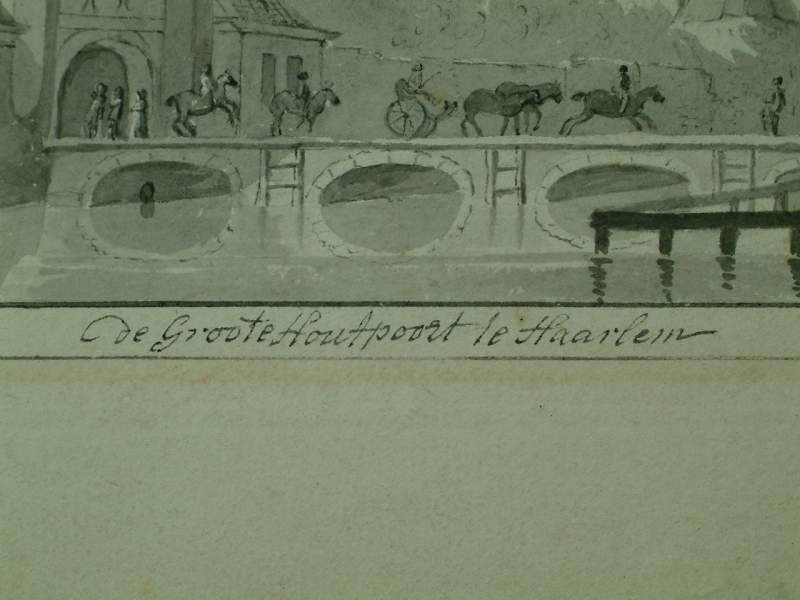 de Groote Houtpoort te Haarlem